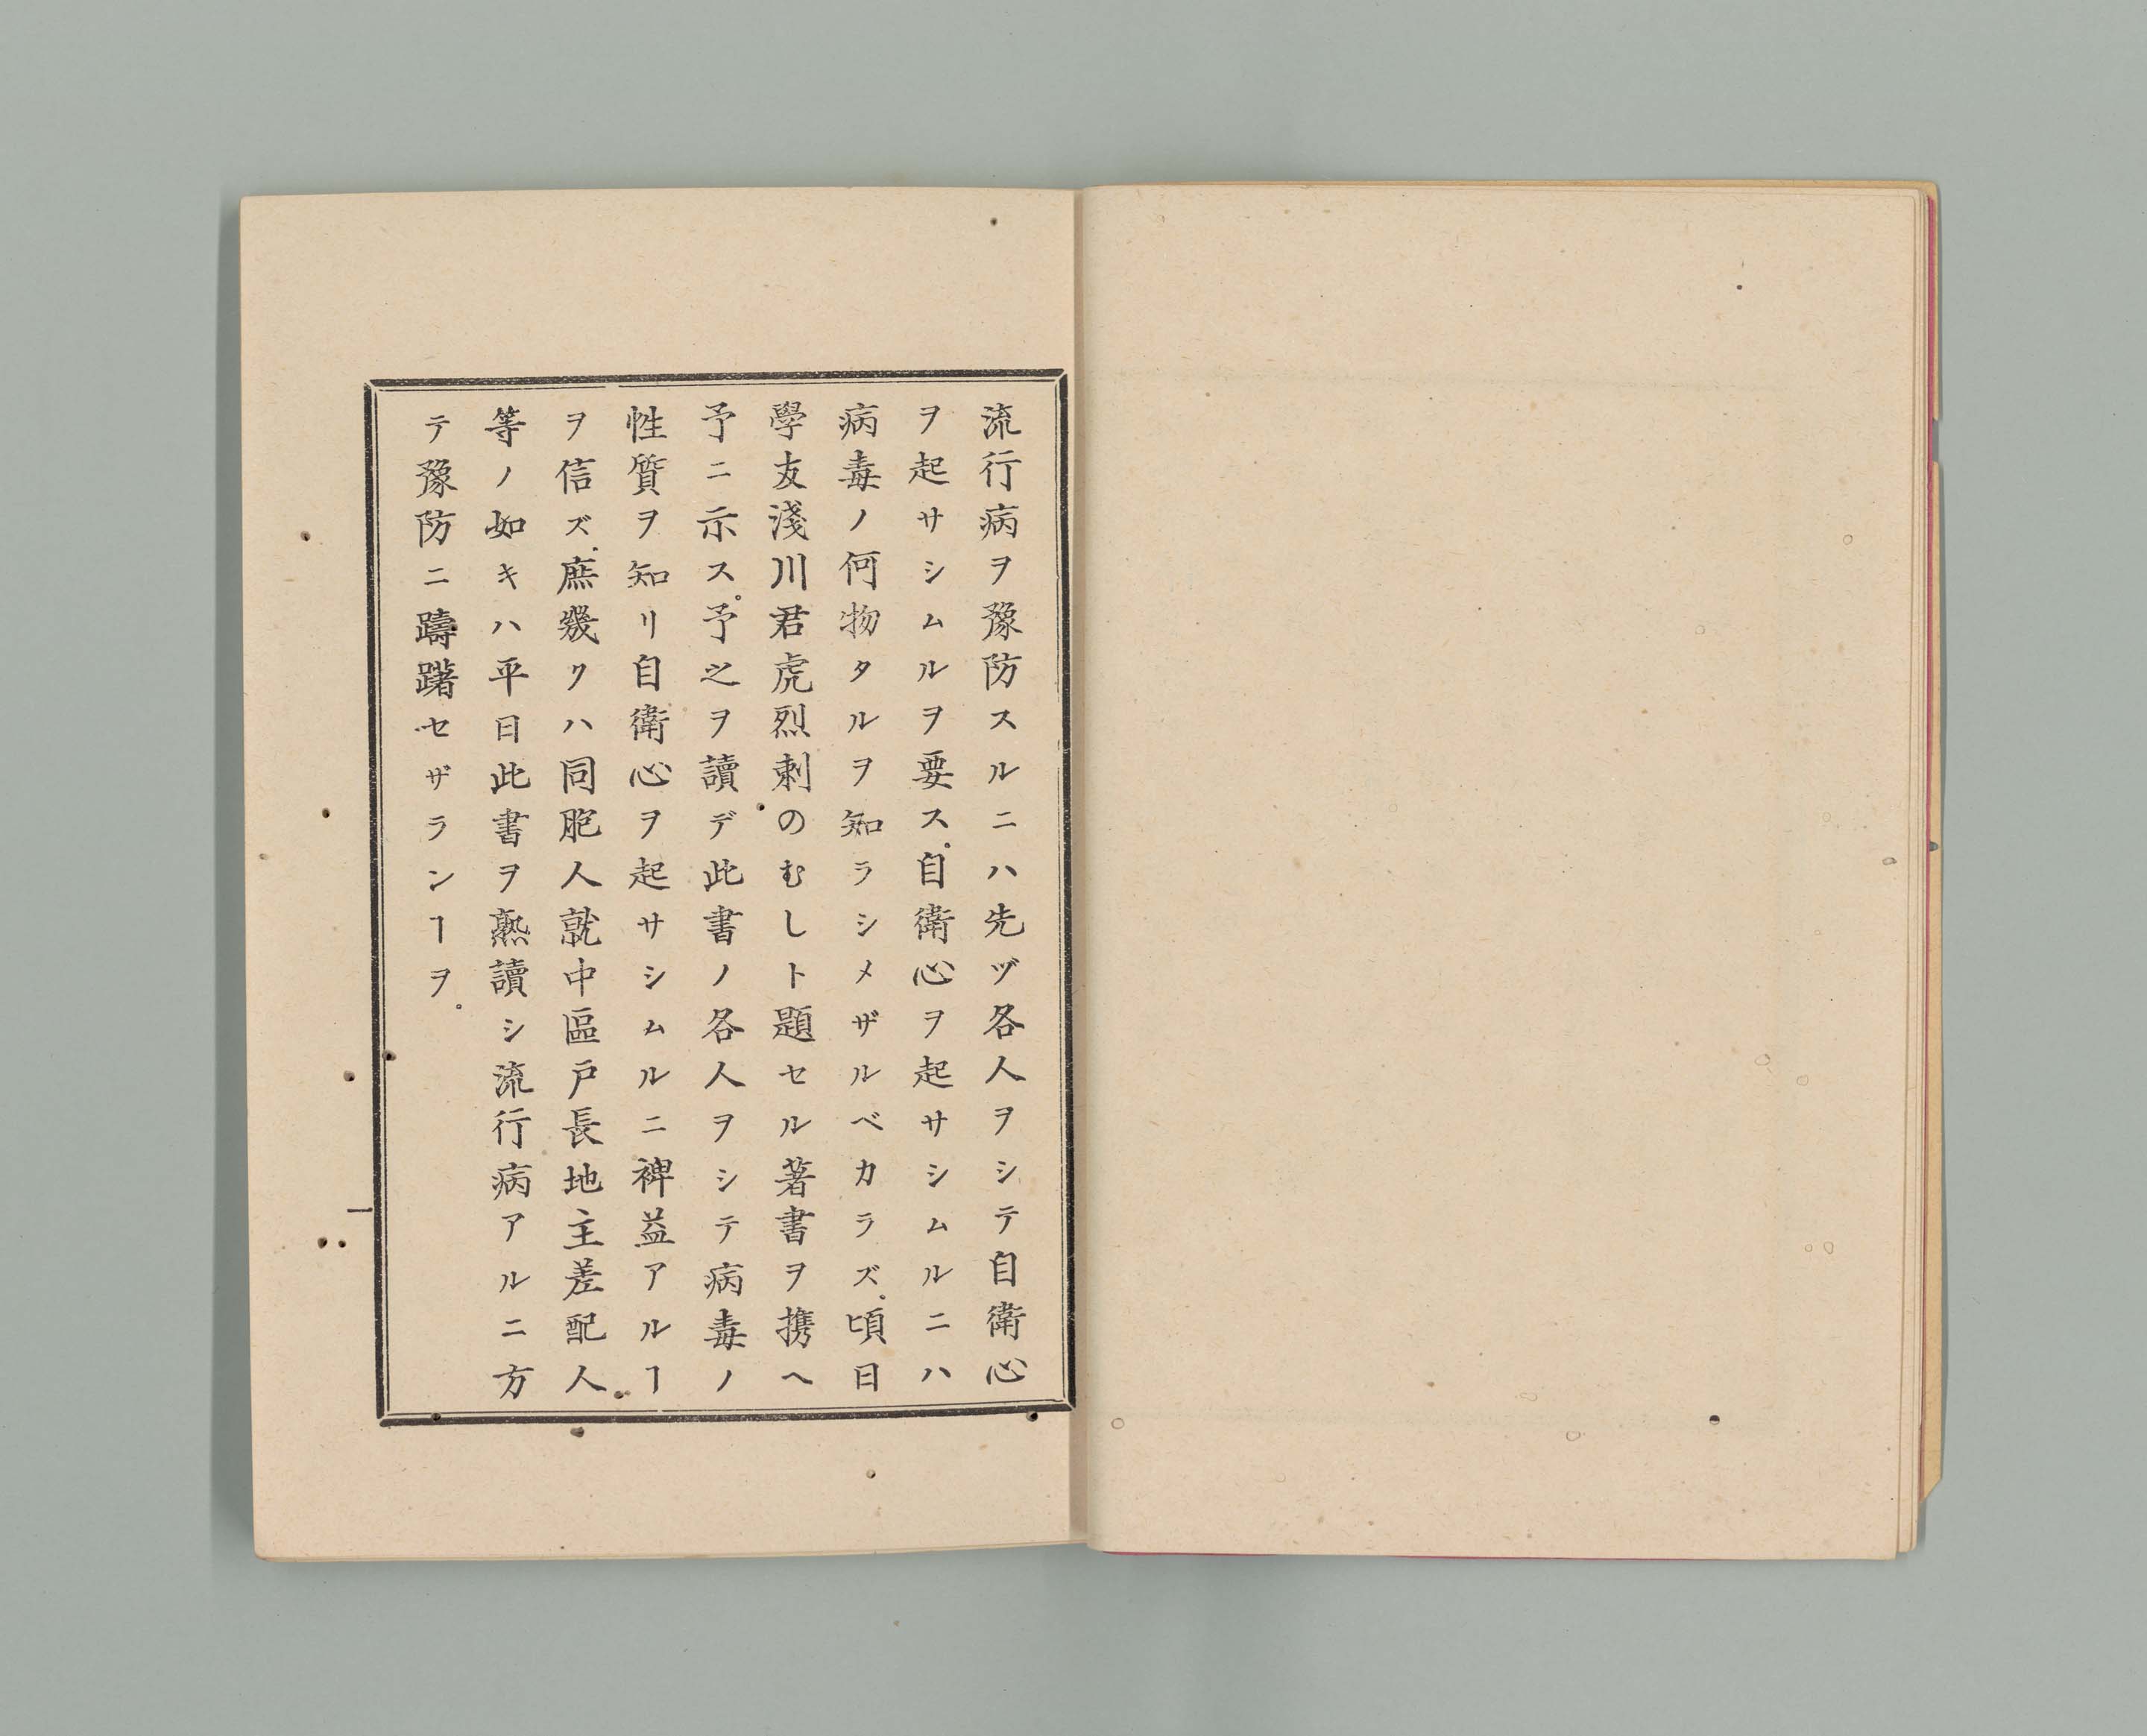 流行病ヲ豫防スルニハ先ヅ各人ヲシテ自衛心
ヲ起サシムルヲ要ス。自衛心ヲ起サシムルニハ
病毒ノ何物タルヲ知ラシメザルベカラズ。頃日
學友淺川君虎烈剌のむしト題セル著書ヲ携ヘ
予ニ示ス。予之ヲ讀デ此書ノ各人ヲシテ病毒ノ
性質ヲ知リ自衛心ヲ起サシムルニ裨益アルヿ
ヲ信ズ。庶幾クハ同胞人就中區戸長地主差配人
等ノ如キハ平日此書ヲ熟讀シ流行病アルニ方
テ豫防ニ躊躇セザランヿヲ。
一